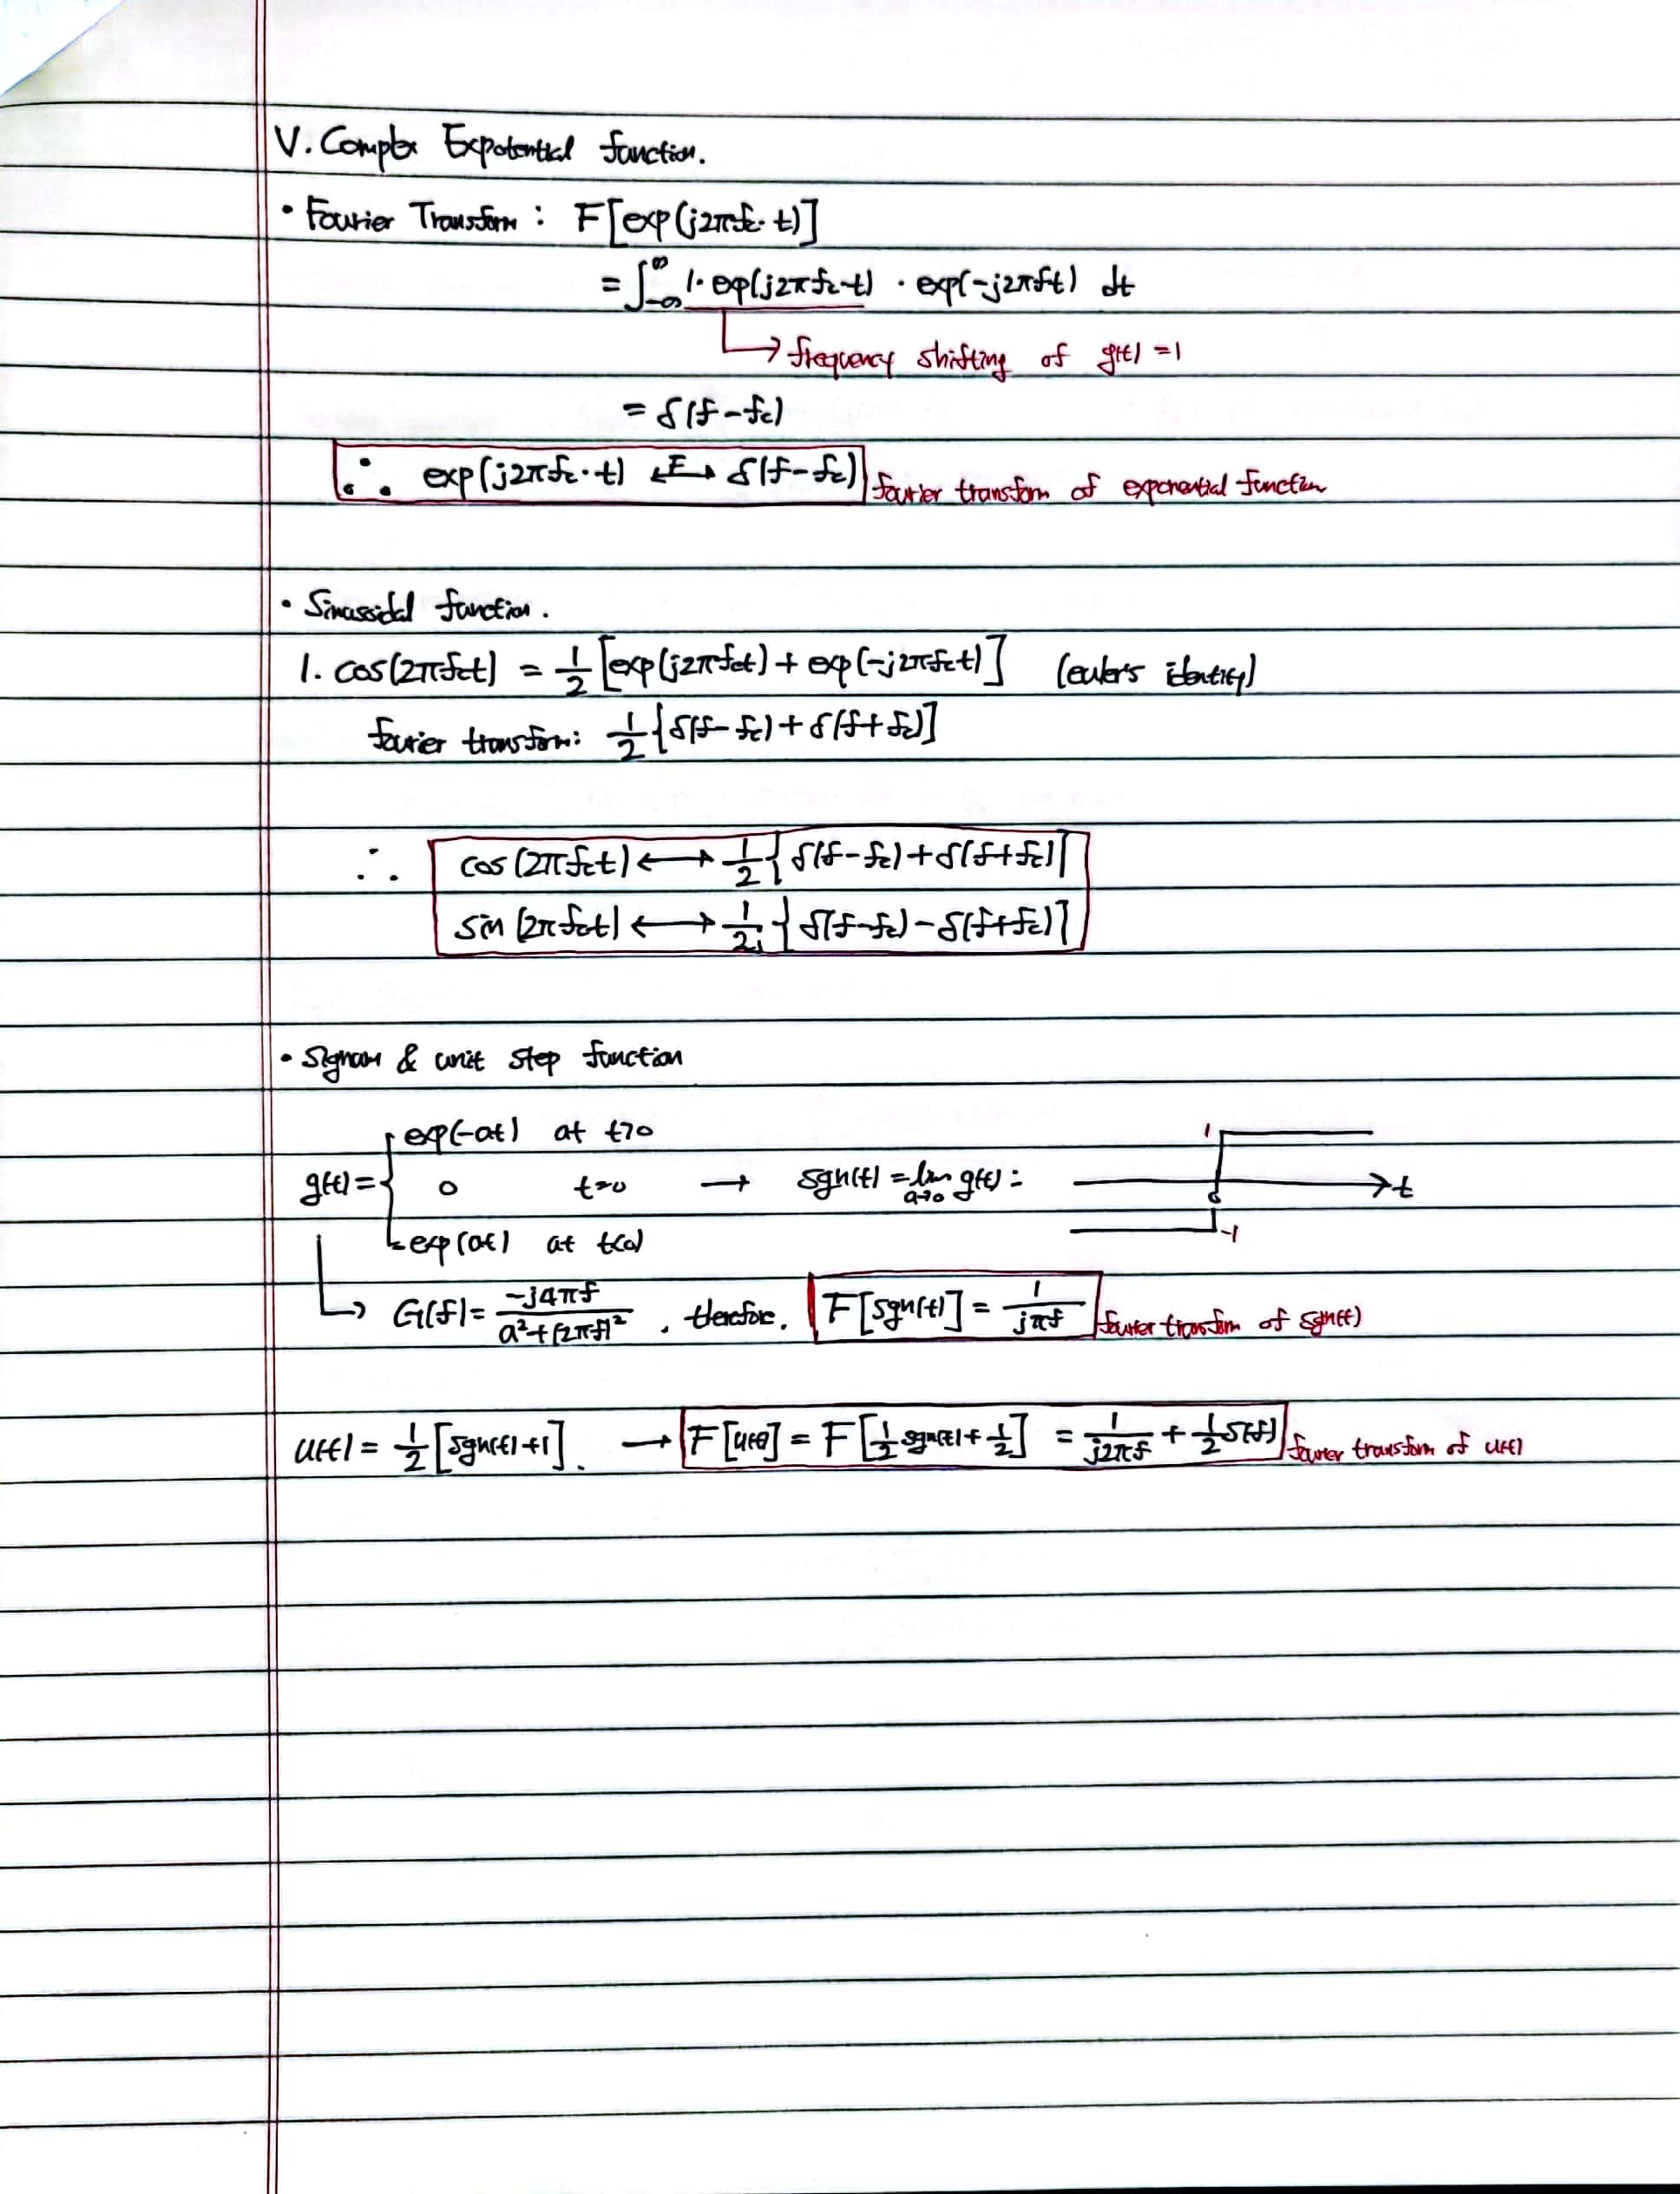 V. Complex Expotential function.
• Fourier Transform : F[exp(j2πfc·t)]
= ∫_{-∞}^{∞} 1·exp(j2πfc·t) · exp(-j2πft) dt
→ frequency shifting of g(t) = 1
= δ(f-fc)
∴ exp(j2πfc·t) ←F→ δ(f-fc) fourier transform of exponential function
• Sinussidal function.
1. cos(2πfct) = 1/2 [exp(j2πfct) + exp(-j2πfct)] (euler's identity)
fourier transform: 1/2 {δ(f-fc) + δ(f+fc)]
∴ cos(2πfct) ←→ 1/2 { δ(f-fc) + δ(f+fc)]
sin(2πfct) ←→ 1/2j { δ(f-fc) - δ(f+fc)]
• Signum & unit step function
g(t) = { exp(-at) at t>0
0 t=0 → sgn(t) = lim_{a→0} g(t) : 1 -1 t
-exp(at) at t<0
→ G(f) = -j4πf / a²+(2πf)² , therefore, F[sgn(t)] = 1/jπf fourier transform of sgn(t)
u(t) = 1/2 [sgn(t)+1]. → F[u(t)] = F[1/2 sgn(t) + 1/2] = 1/j2πf + 1/2 δ(f) fourier transform of u(t)